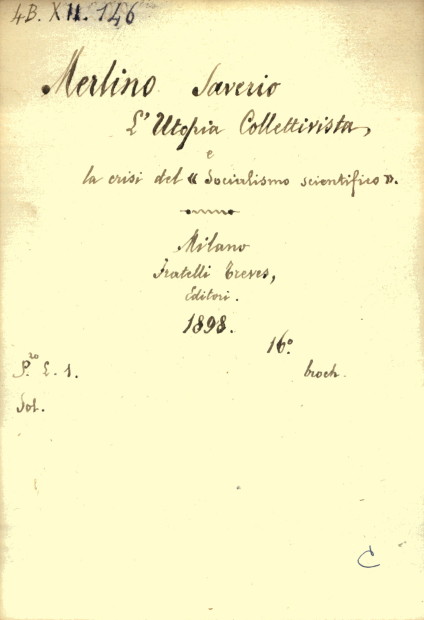 4B. XII. 146
Merlino Saverio
L'Utopia Collettivista,
e
la crisi del « Socialismo scientifico ».
Milano
Fratelli Treves,
Editori.
1898.
16º
P.zo L. 1. broch.
Sol.
C